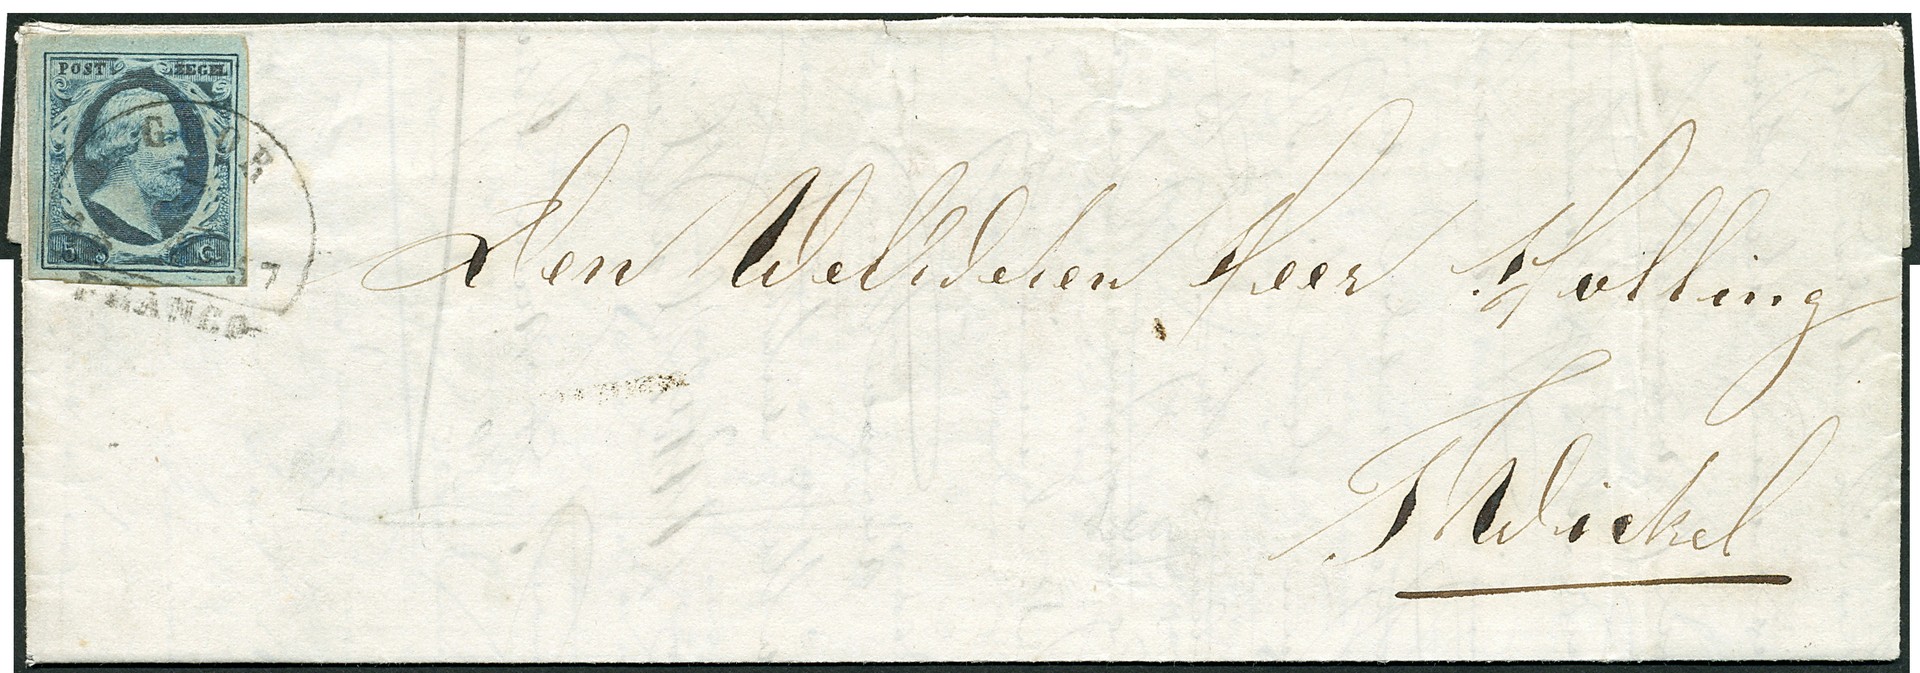 POST ZEGEL
5 C
GOR
FRANCO
Den WelEdelen Heer Holling
Twickel